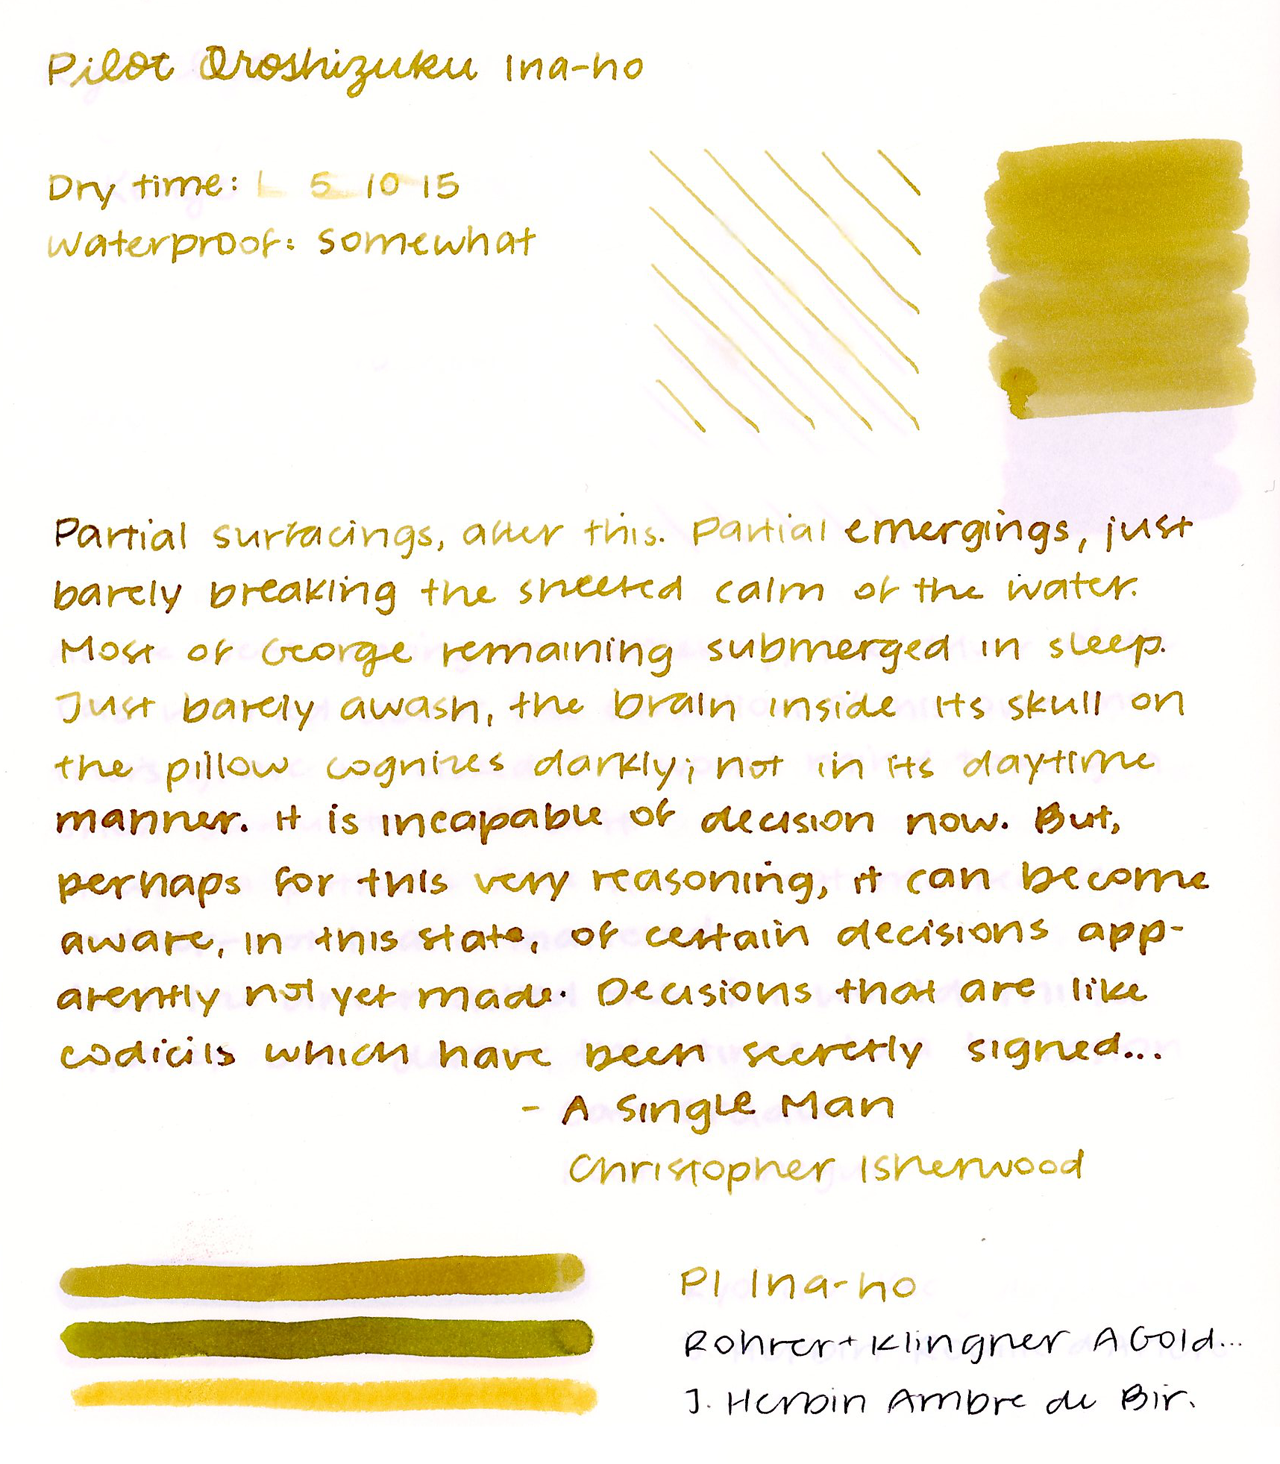 Pilot Iroshizuku Ina-ho
Dry time: 1 5 10 15
Waterproof: Somewhat
Partial surfacings, after this. Partial emergings, just
barely breaking the sheeted calm of the water.
Most of George remaining submerged in sleep.
Just barely awash, the brain inside its skull on
the pillow cognizes darkly; not in its daytime
manner. It is incapable of decision now. But,
perhaps for this very reasoning, it can become
aware, in this state, of certain decisions app-
arently not yet made. Decisions that are like
codicils which have been secretly signed...
- A Single Man
Christopher Isherwood
PI Ina-ho
Rohrer + Klingner AGold...
J. Herbin Ambre de Bir.